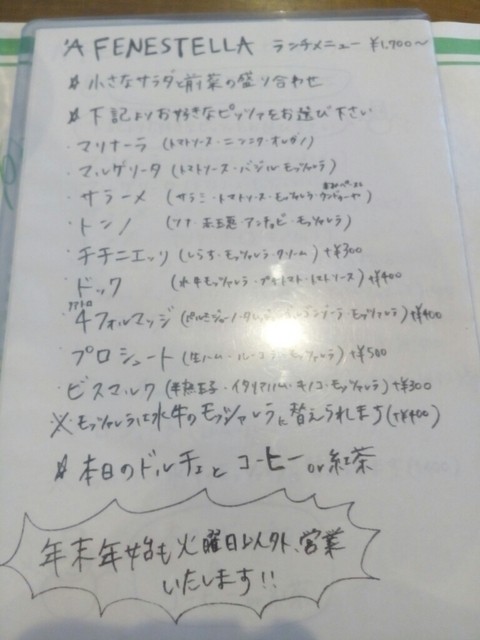 'A FENESTELLA ランチメニュー ¥1,700〜
小さなサラダと前菜の盛り合わせ
下記よりお好きなピッツァをお選び下さい
・マリナーラ (トマトソース・ニンニク・オレガノ)
・マルゲリータ (トマトソース・バジル・モッツァレラ)
・サラーメ (サラミ・トマトソース・モッツァレラ・ンドゥーヤ)
・トンノ (ツナ・赤玉葱・アンチョビ・モッツァレラ)
・チチニエッリ (しらす・モッツァレラ・クリーム) +¥300
・ドック (水牛モッツァレラ・プチトマト・トマトソース) +¥400
クアトロ
・4フォルマッジ (パルミジャーノ・ゴルゴンゾーラ・モッツァレラ) +¥400
・プロシュート (生ハム・ルーコラ・モッツァレラ) +¥500
・ビスマルク (半熟玉子・イタリアハム・キノコ・モッツァレラ) +¥300
※モッツァレラは水牛のモッツァレラに替えられます(+¥400)
本日のドルチェと コーヒー or 紅茶
年末年始も火曜日以外、営業
いたします!!